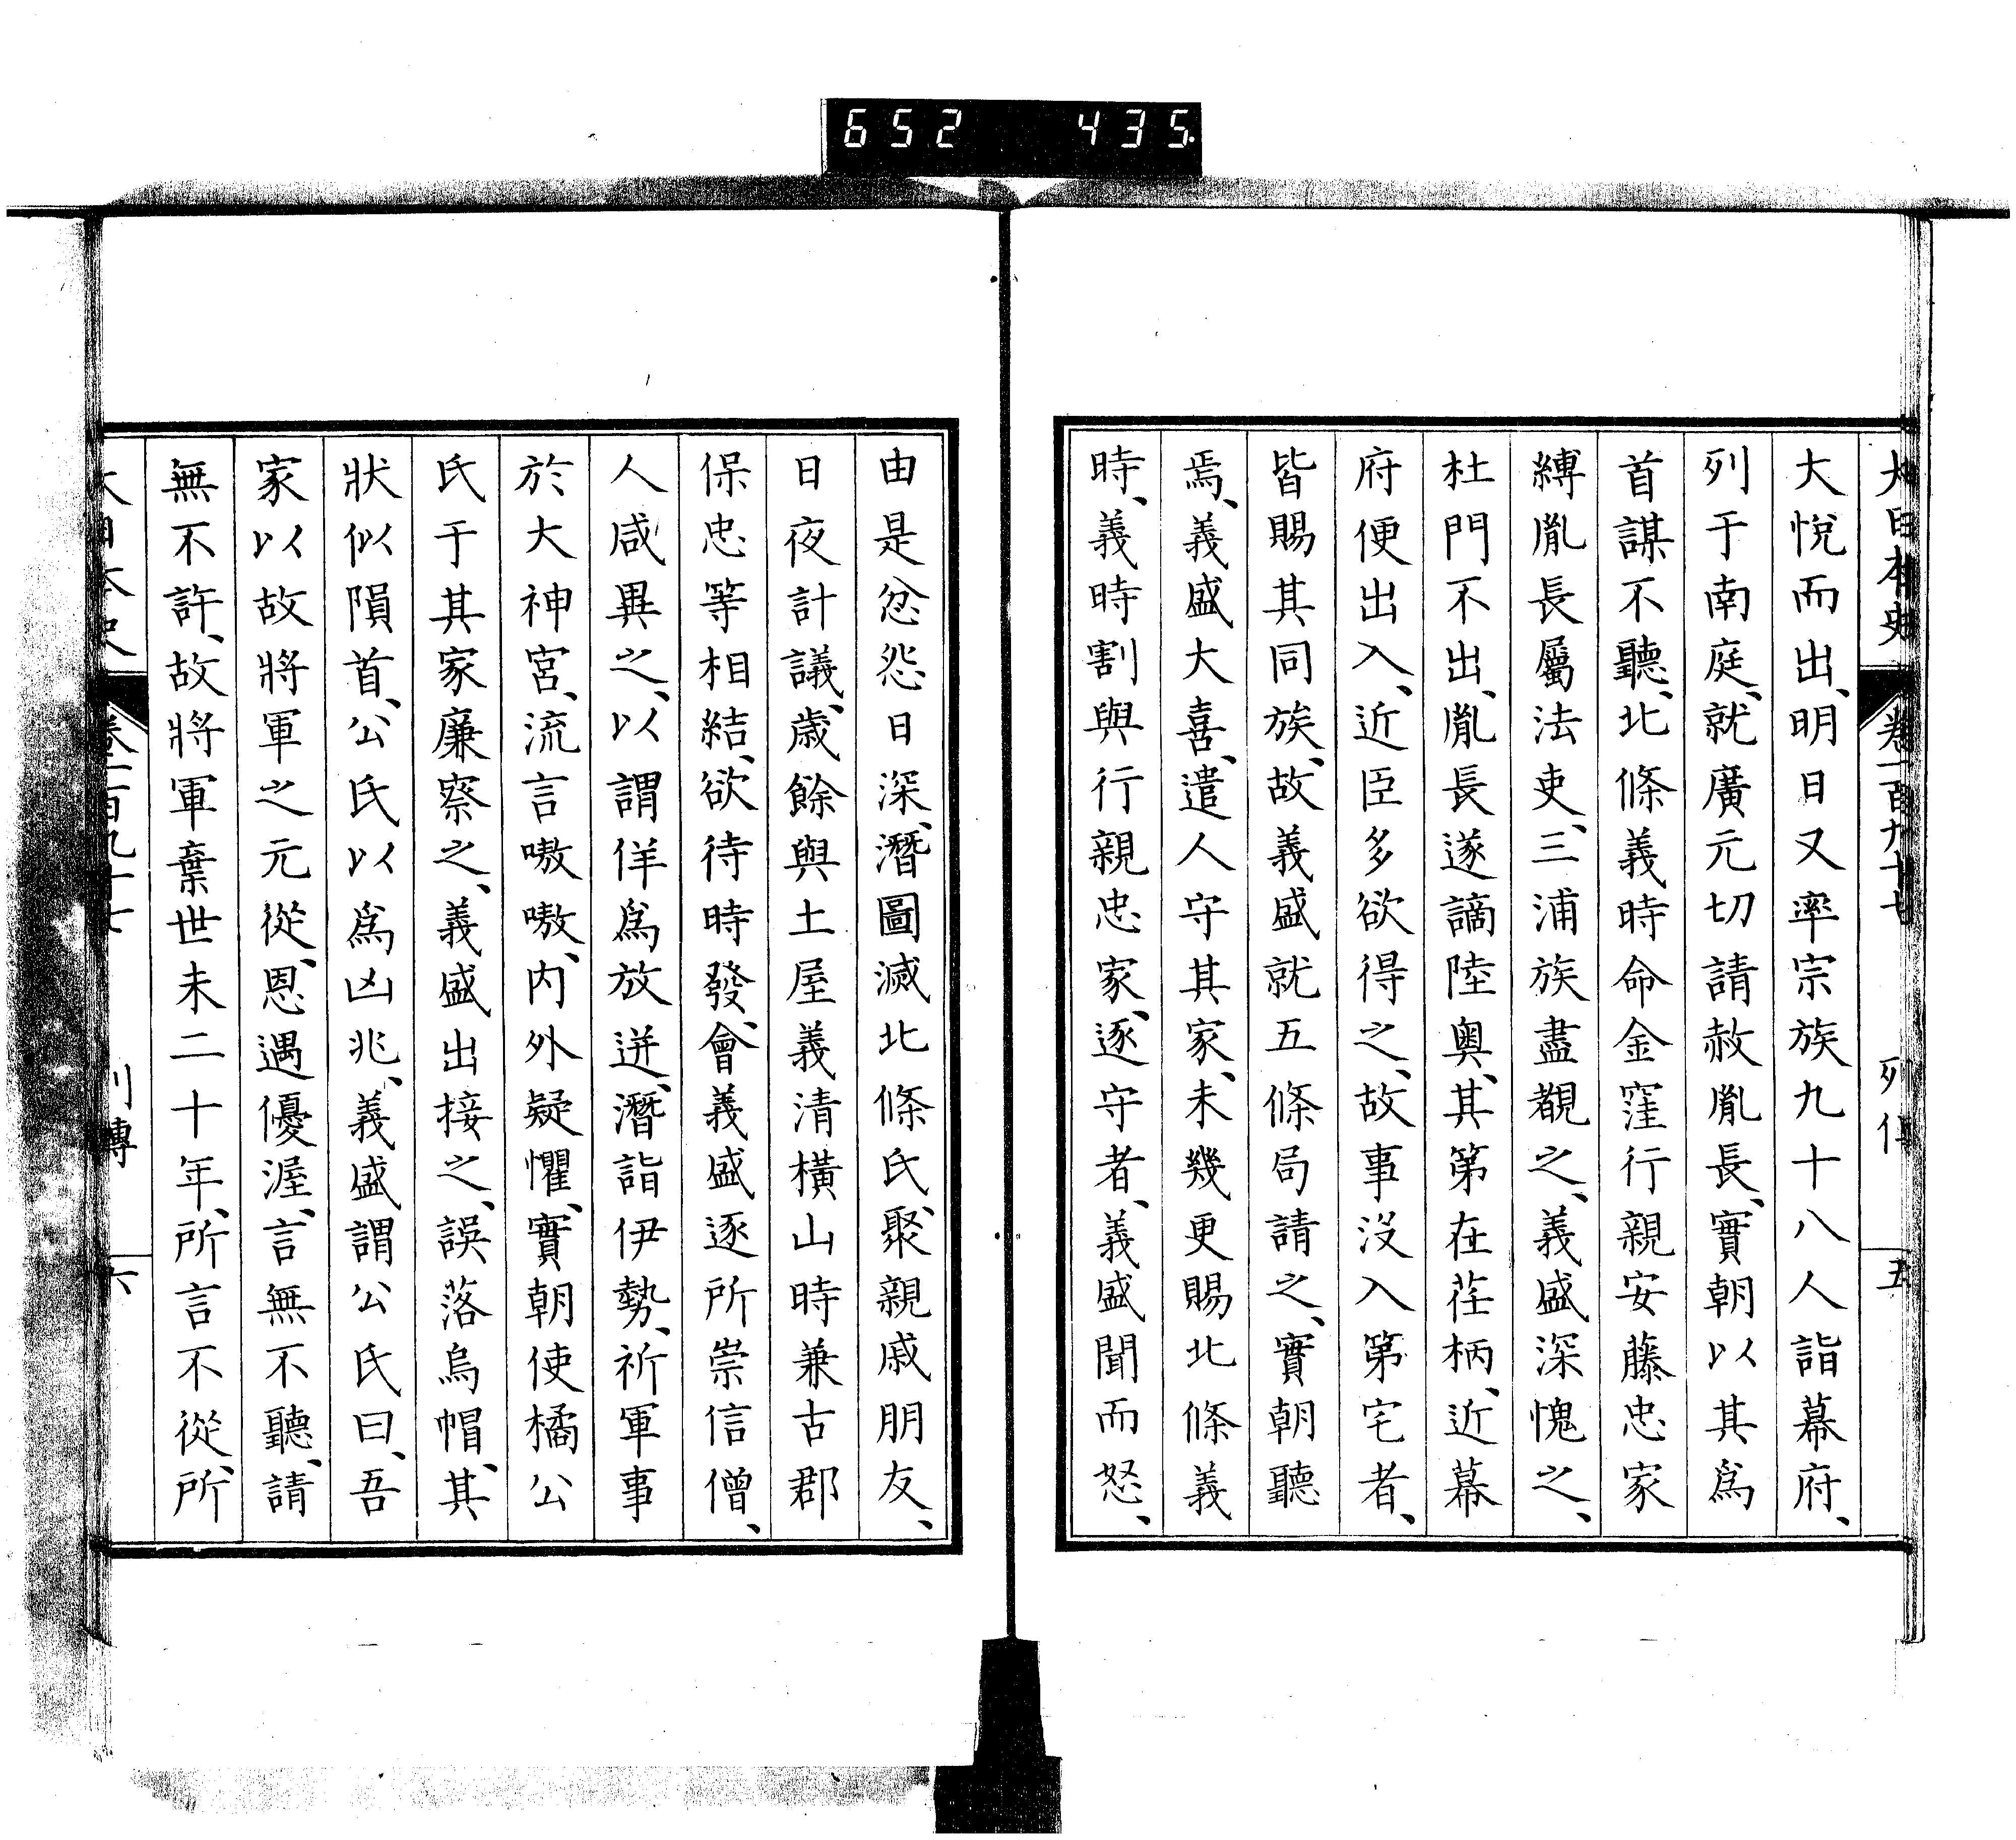 652 435.
大日本史 卷一百九十七 列傳 五
大悅而出、明日又率宗族九十八人詣幕府、
列于南庭、就廣元切請赦胤長、實朝以其爲
首謀不聽、北條義時命金窪行親安藤忠家
縛胤長屬法吏、三浦族盡覩之、義盛深愧之、
杜門不出、胤長遂謫陸奧、其第在荏柄、近幕
府便出入、近臣多欲得之、故事沒入第宅者、
皆賜其同族、故義盛就五條局請之、實朝聽
焉、義盛大喜、遣人守其家、未幾更賜北條義
時、義時割與行親忠家、逐守者、義盛聞而怒、
由是忿怨日深、潛圖滅北條氏、聚親戚朋友、
日夜計議、歲餘與土屋義清橫山時兼古郡
保忠等相結、欲待時發、會義盛逐所崇信僧、
人咸異之、以謂佯爲放逬、潛詣伊勢、祈軍事
於大神宮、流言嗷嗷、内外疑懼、實朝使橘公
氏于其家廉察之、義盛出接之、誤落烏帽、其
狀似隕首、公氏以爲凶兆、義盛謂公氏曰、吾
家以故將軍之元從、恩遇優渥、言無不聽、請
無不許、故將軍棄世未二十年、所言不從、所
大日本史 卷一百九十七 列傳 六